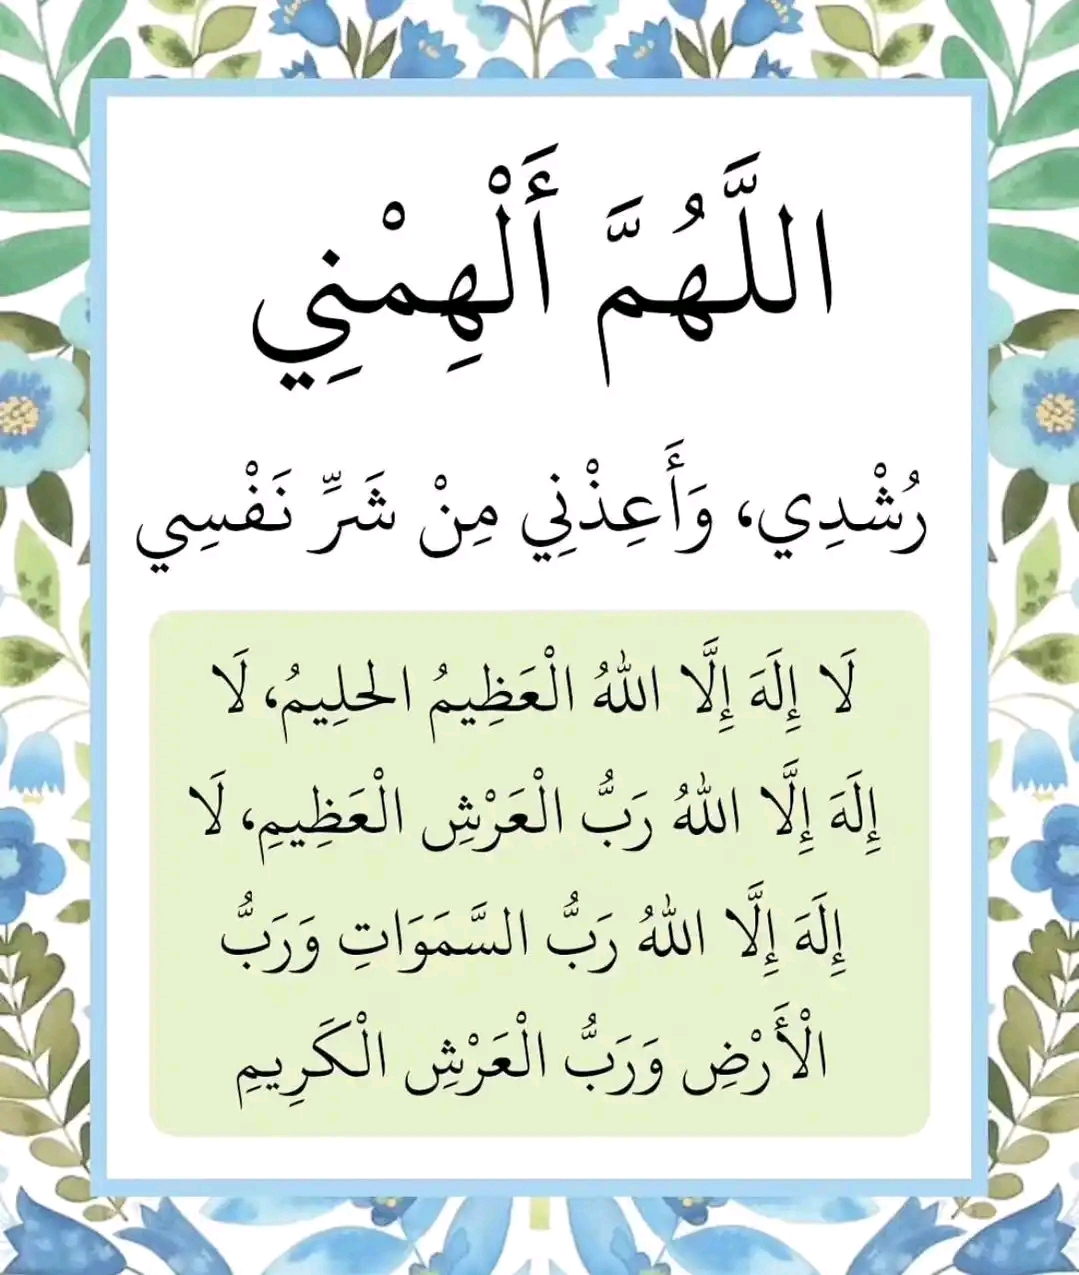 اللَّهُمَّ أَلْهِمْنِي
رُشْدِي، وَأَعِذْنِي مِنْ شَرِّ نَفْسِي
لَا إِلَهَ إِلَّا اللهُ الْعَظِيمُ الحلِيمُ، لَا
إِلَهَ إِلَّا اللهُ رَبُّ الْعَرْشِ الْعَظِيمِ، لَا
إِلَهَ إِلَّا اللهُ رَبُّ السَّمَوَاتِ وَرَبُّ
الْأَرْضِ وَرَبُّ الْعَرْشِ الْكَرِيمِ